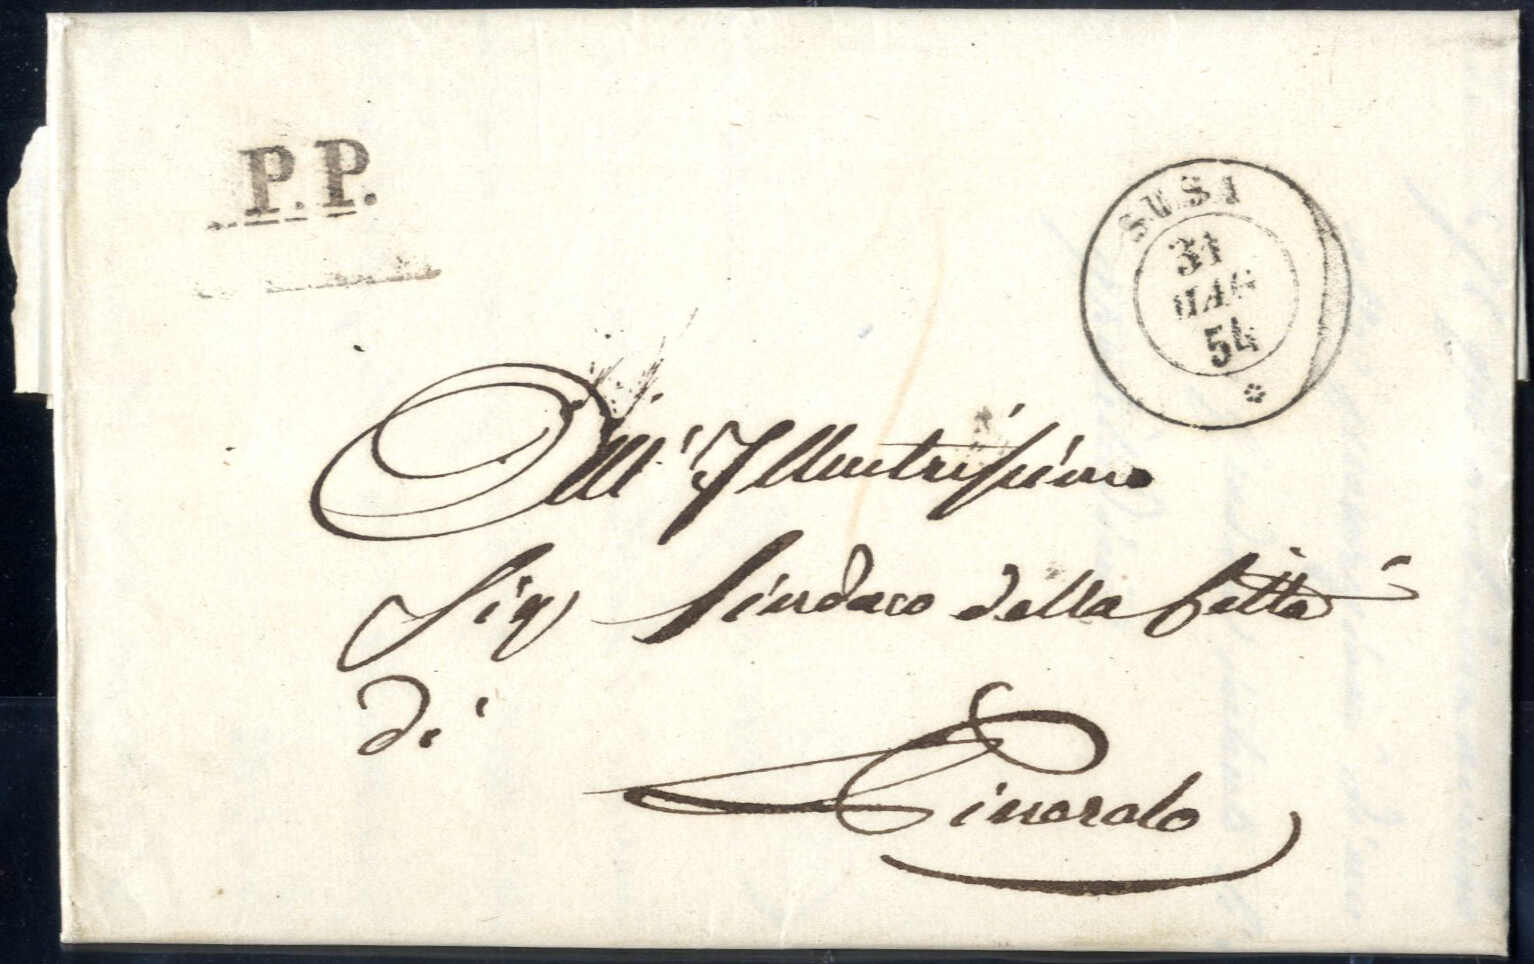 P.P.
SUSA
31
MAG
54
All' Illustrissimo
Sig Sindaco della Città
di
Pinerolo